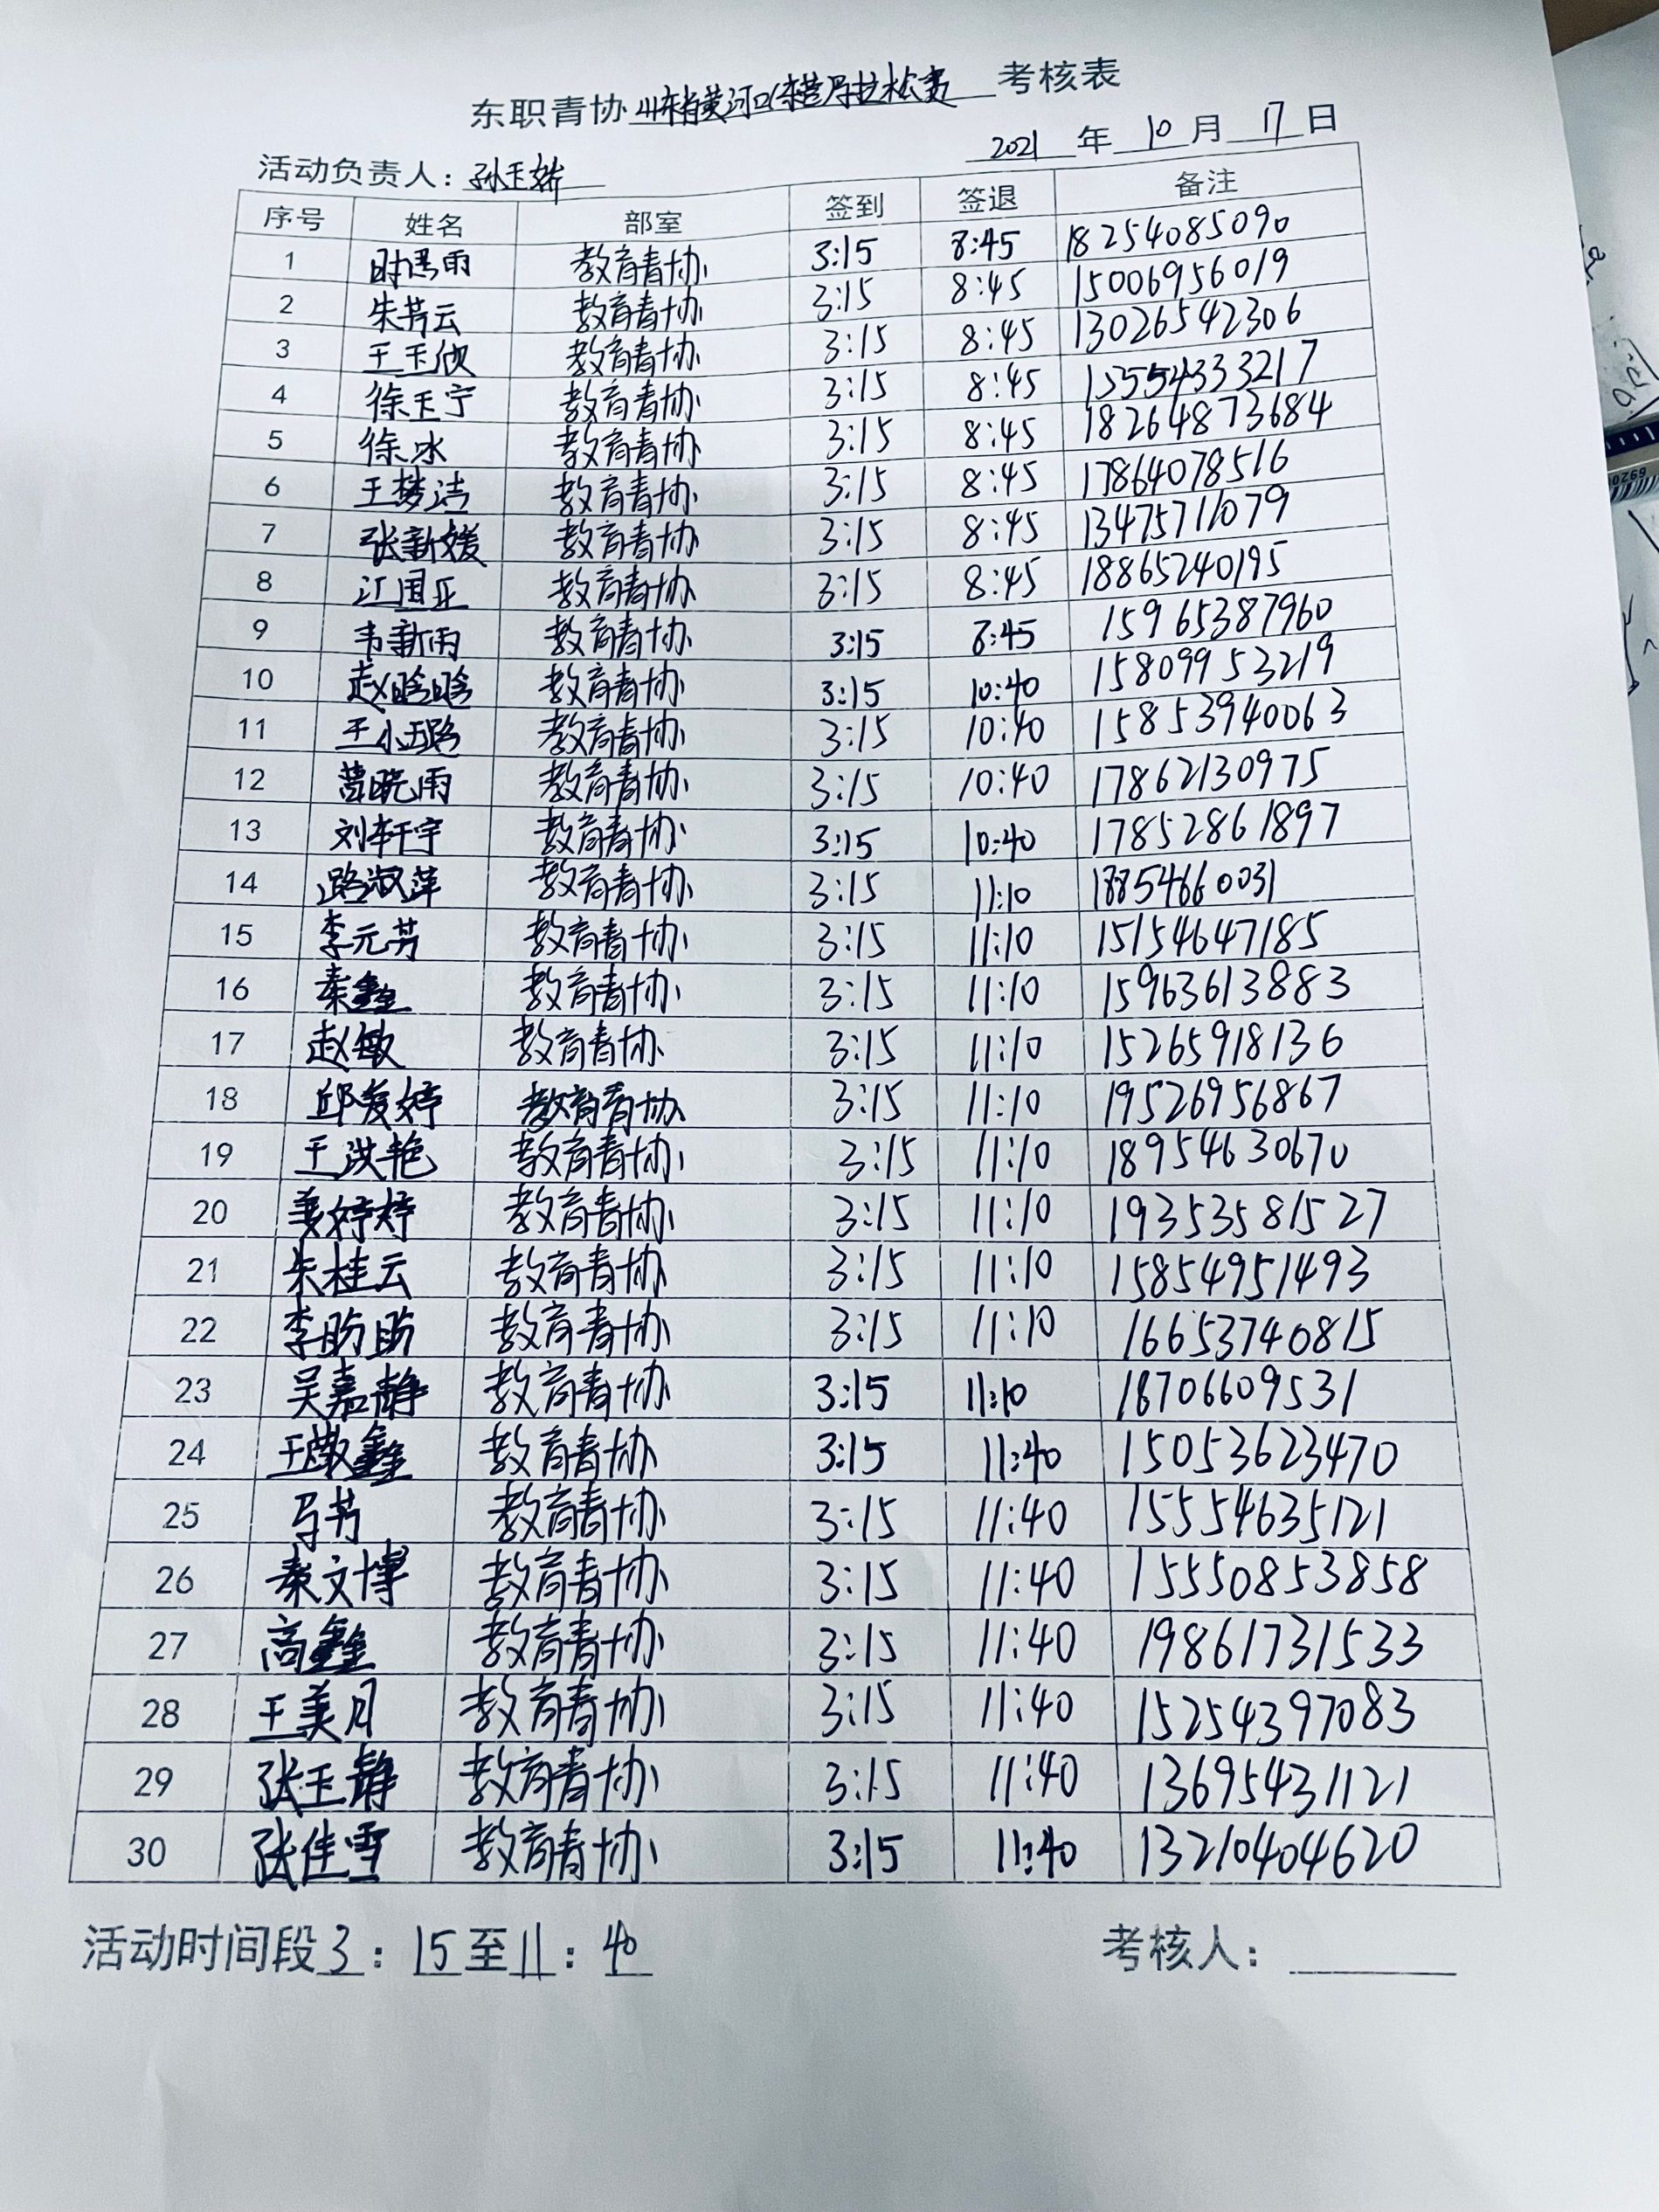 东职青协山东省黄河口(东营)马拉松赛考核表
2021年10月17日
活动负责人：孙玉娇
序号 姓名 部室 签到 签退 备注
1 时雨 教育青协 3:15 8:45 18254085090
2 朱芳云 教育青协 3:15 8:45 15006956019
3 王玉欣 教育青协 3:15 8:45 13026542306
4 徐玉宁 教育青协 3:15 8:45 15554333217
5 徐冰 教育青协 3:15 8:45 18264873684
6 王梦洁 教育青协 3:15 8:45 17864078516
7 张新媛 教育青协 3:15 8:45 13475711079
8 江国正 教育青协 3:15 8:45 18865240195
9 韦新雨 教育青协 3:15 8:45 15965387960
10 赵晗晗 教育青协 3:15 10:40 15809953219
11 王小璐 教育青协 3:15 10:40 15853940063
12 曹晓雨 教育青协 3:15 10:40 17862130975
13 刘轩宇 教育青协 3:15 10:40 17852861897
14 路淑萍 教育青协 3:15 11:10 18854660031
15 李元芳 教育青协 3:15 11:10 15154647185
16 秦鑫 教育青协 3:15 11:10 15963613883
17 赵敏 教育青协 3:15 11:10 15265918136
18 邱爱婷 教育青协 3:15 11:10 19526956867
19 王洪艳 教育青协 3:15 11:10 18954630670
20 姜婷婷 教育青协 3:15 11:10 19353581527
21 朱桂云 教育青协 3:15 11:10 15854951493
22 李盼盼 教育青协 3:15 11:10 16653740815
23 吴嘉静 教育青协 3:15 11:10 18706609531
24 王敬鑫 教育青协 3:15 11:40 15053623470
25 马芳 教育青协 3:15 11:40 15554635121
26 秦文博 教育青协 3:15 11:40 15550853858
27 高鑫 教育青协 3:15 11:40 19861731533
28 王美月 教育青协 3:15 11:40 15254397083
29 张玉静 教育青协 3:15 11:40 13695431121
30 张佳雪 教育青协 3:15 11:40 13210404620
活动时间段3：15至11：40 考核人：